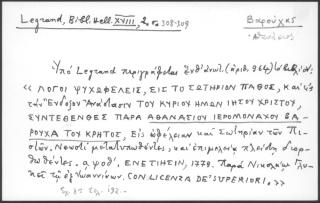 Legrand, Bibl. Hell. XVIII, 2, σ. 308-309
Βαρούχας
Ἀθανάσιος
Ὑπὸ Legrand περιγράφεται ἐνθ' ἀνωτ. (ἀριθ. 964) τὸ βιβλίον:
«ΛΟΓΟΙ ΨΥΧΩΦΕΛΕΙΣ, ΕΙΣ ΤΟ ΣΩΤΗΡΙΟΝ ΠΑΘΟΣ, καὶ εἰς
τὴν Ἔνδοξον Ἀνάστασιν ΤΟΥ ΚΥΡΙΟΥ ΗΜΩΝ ΙΗΣΟΥ ΧΡΙΣΤΟΥ,
ΣΥΝΤΕΘΕΝΤΕΣ ΠΑΡΑ ΑΘΑΝΑΣΙΟΥ ΙΕΡΟΜΟΝΑΧΟΥ ΒΑ
ΡΟΥΧΑ ΤΟΥ ΚΡΗΤΟΣ, Εἰς ὠφέλειαν καὶ Σωτηρίαν τῶν Πι-
στῶν. Νεωστὶ μετατυπωθέντες, καὶ ἐπιμελείᾳ πλείστῃ διορ-
θωθέντες. αψοθ΄. ΕΝΕΤΙΗΣΙΝ, 1779. Παρὰ Νικολάῳ Γλυ-
κεῖ τῷ ἐξ Ἰωαννίνων. CON LICENZA DE' SUPERIORI.»